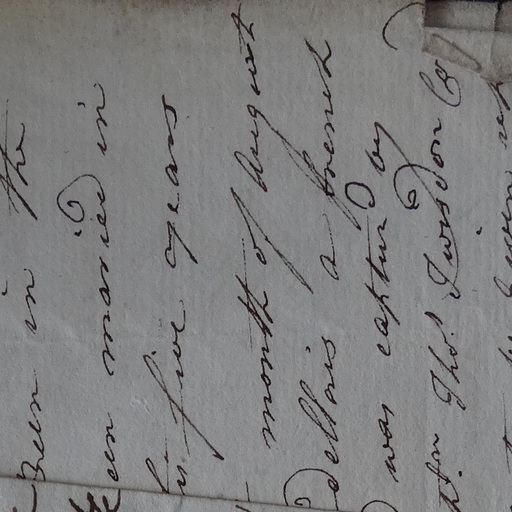 been in the
been married in
his five years
month of August
Dellois a french
was captur'd by
Capt.n Tho.s Twisdon Co